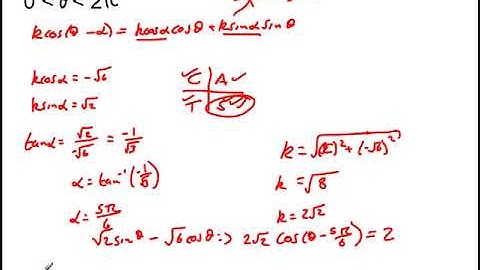 0 < θ < 2π
k cos(θ - α) = k cosα cosθ + k sinα sinθ
k cosα = -√6
k sinα = √2
C✓ A✓
T S✓✓
tanα = √2/-√6 = -1/√3
α = tan⁻¹(-1/√3)
α = 5π/6
k = √(√2)² + (-√6)²
k = √8
k = 2√2
√2 sinθ - √6 cosθ => 2√2 cos(θ - 5π/6) = 2